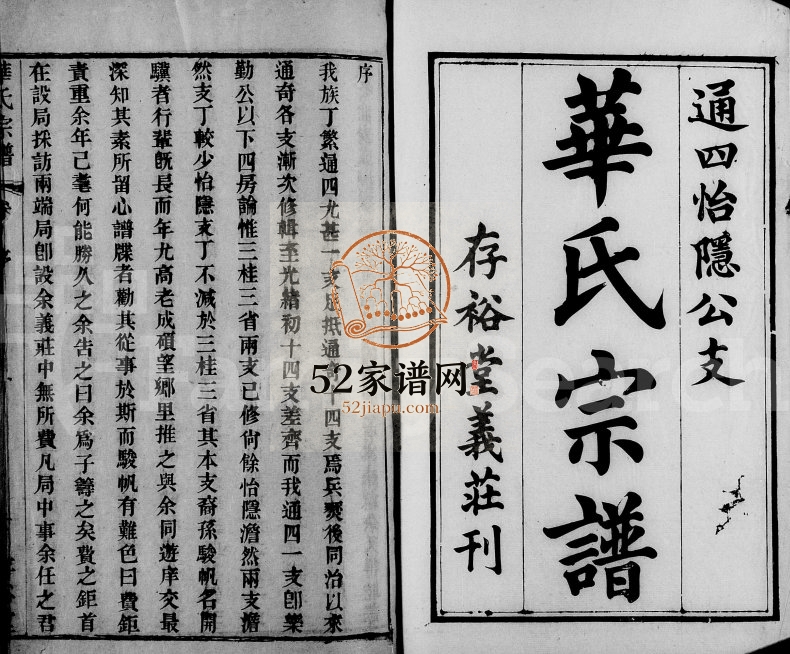 通四怡隱公支
華氏宗譜
存裕堂義莊刊
序
我族丁繁通四尤甚一支足抵通 十四支爲兵燹後同治以來
通奇各支漸次修輯至光緒初十四支差齊而我通四一支卽樂
勤公以下四房論惟三桂三省兩支已修尙餘怡隱澹然兩支澹
然支丁較少怡隱支丁不減於三桂三省其本支裔孫駿帆名開
驥者行輩旣長而年尤高老成碩望鄉里推之與余同遊庠交最
深知其素所留心譜牒者勸其從事於斯而駿帆有難色曰費鉅
責重余年已耄何能勝久之余告之曰余爲子籌之矣費之鉅首
在設局採訪兩端局卽設余義莊中無所費凡局中事余任之君
華氏宗譜
序
52家谱网
52jiapu.com